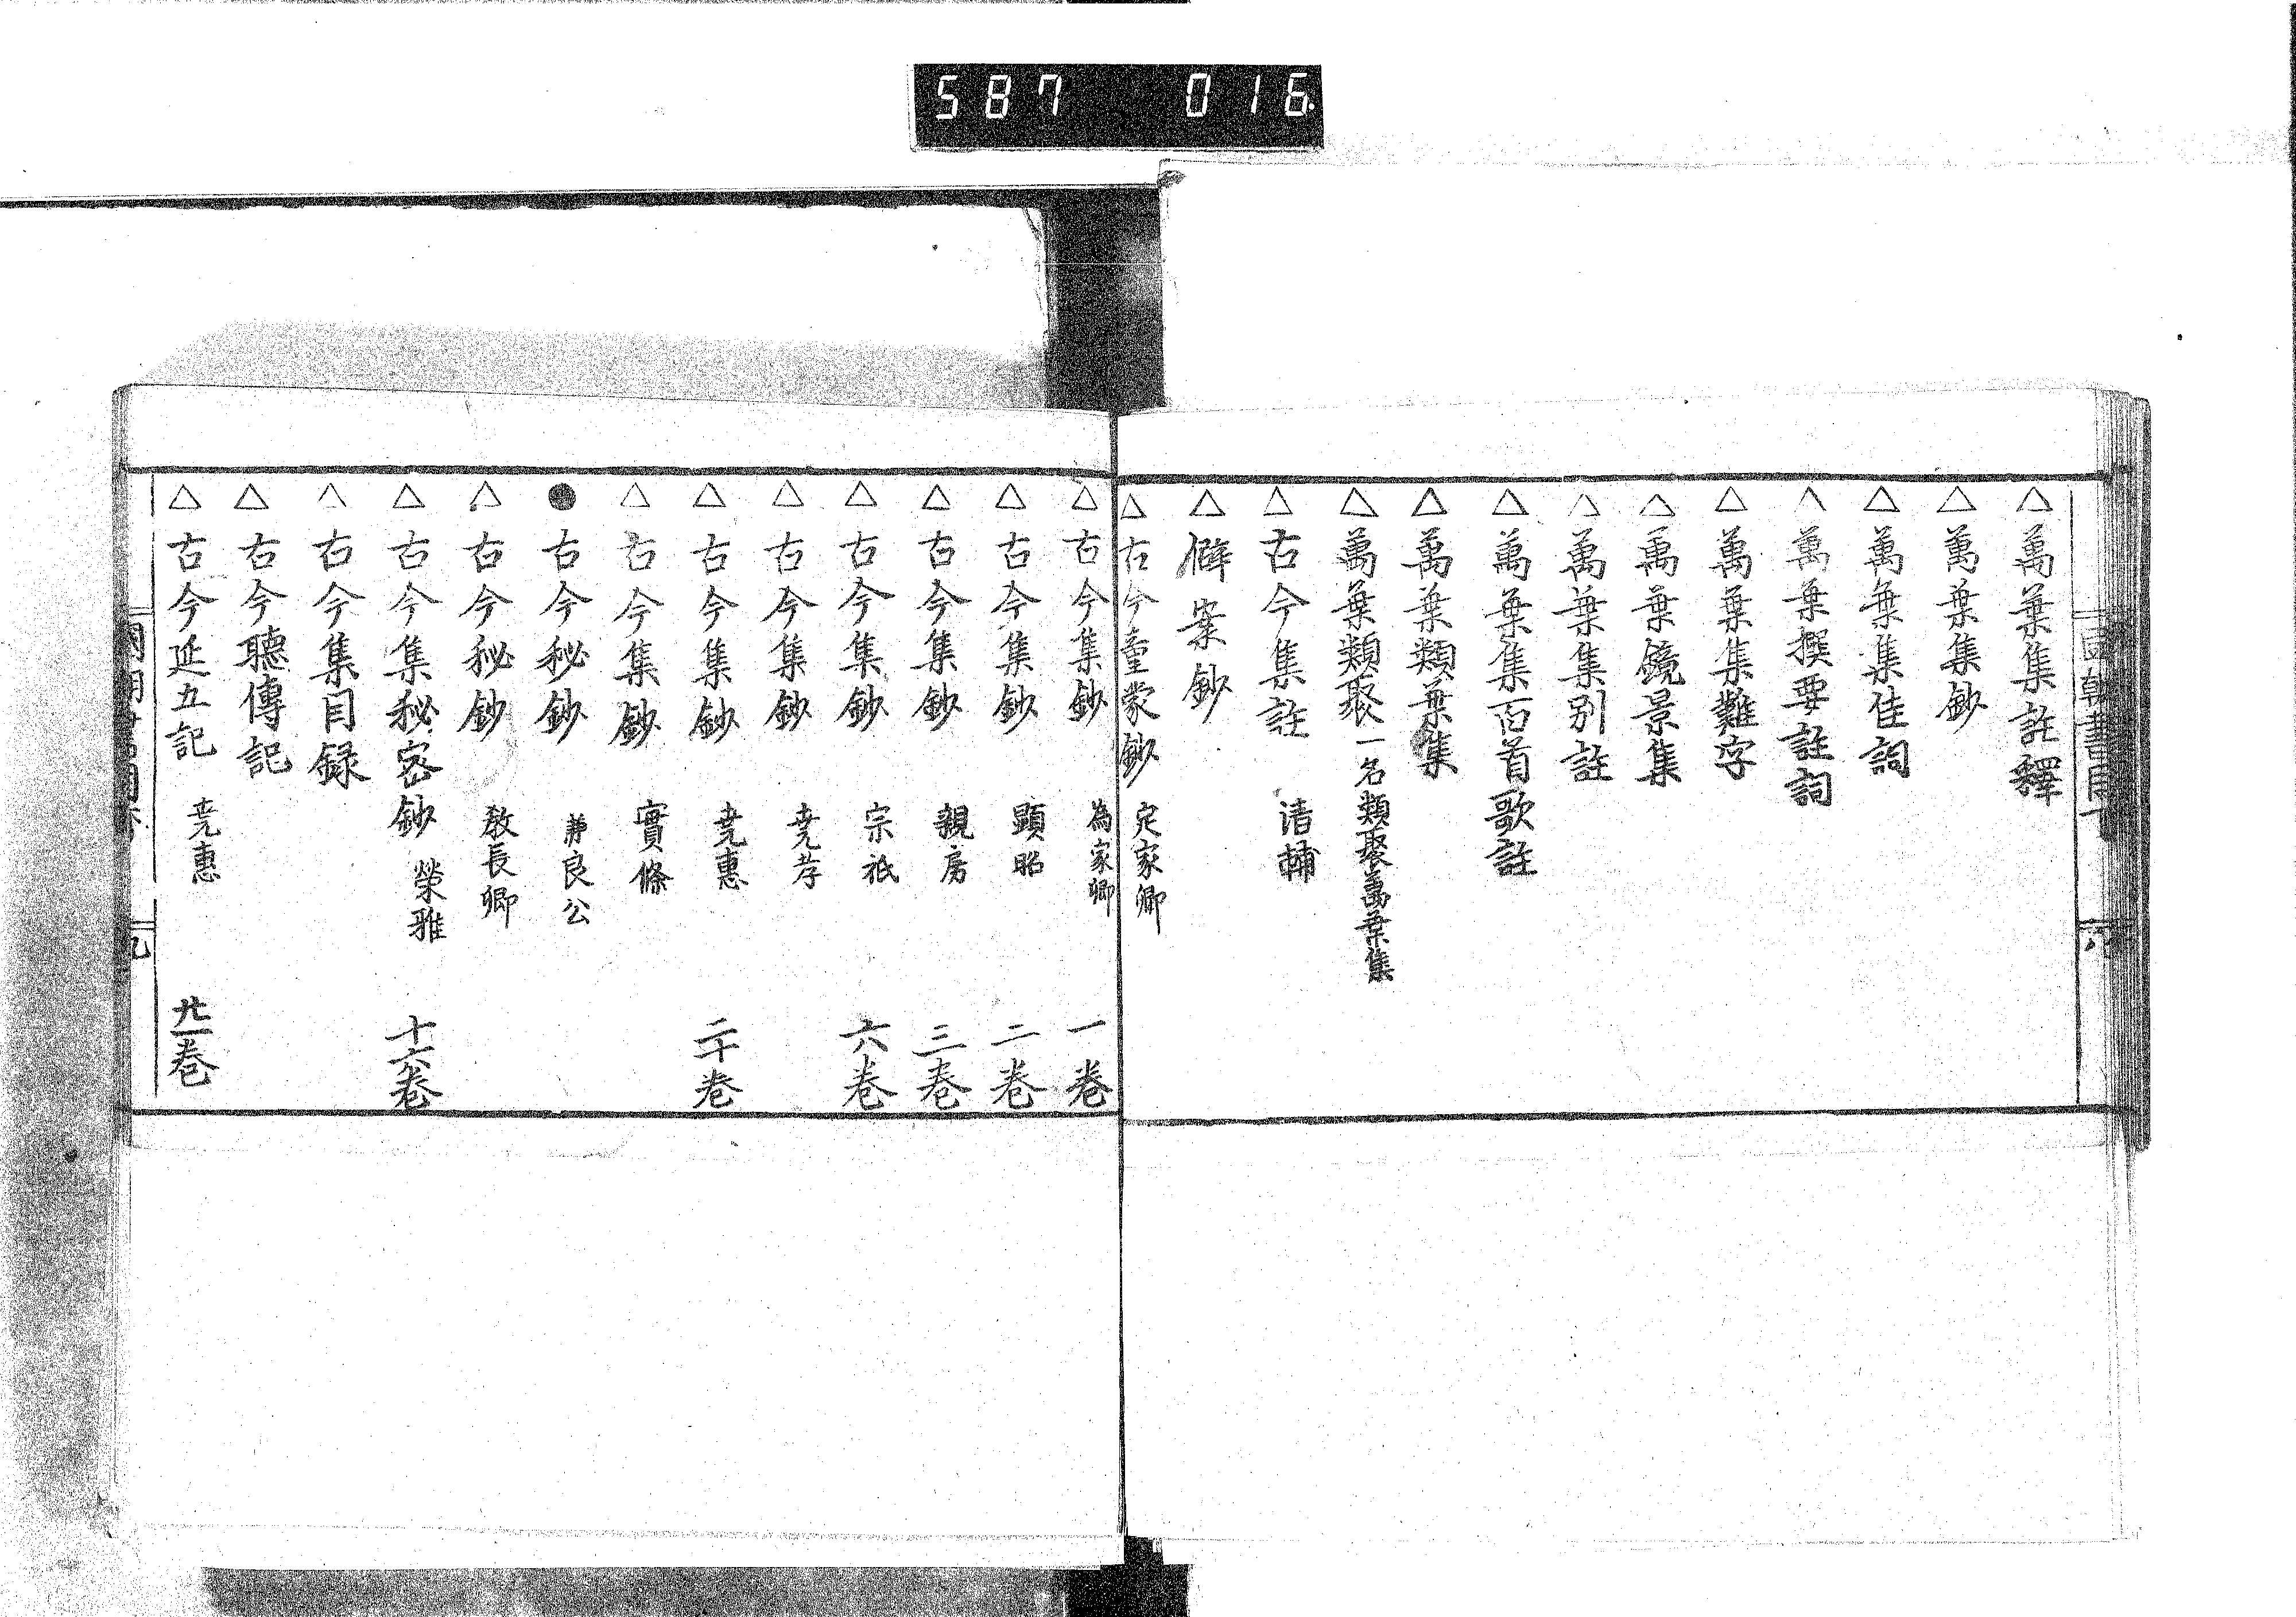 587 016
△萬葉集註釋
△萬葉集鈔
△萬葉集佳詞
△萬葉撰要註詞
△萬葉集難字
△萬葉鏡景集
△萬葉集別註
△萬葉集百首歌註
△萬葉類葉集
△萬葉類聚 一名類聚萬葉集
△古今集註 清輔
△僻案鈔
△古今童蒙鈔 定家卿
△古今集鈔 為家卿 一卷
△古今集鈔 顯昭 二卷
△古今集鈔 親房 三卷
△古今集鈔 宗祇 六卷
△古今集鈔 尭孝
△古今集鈔 尭惠 二十卷
△古今集鈔 實條
●古今秘鈔 兼良公
△古今秘鈔 教長卿
△古今集秘密鈔 榮雅 十六卷
△古今集目録
△古今聽傳記
△古今延五記 尭惠 廿一卷
九